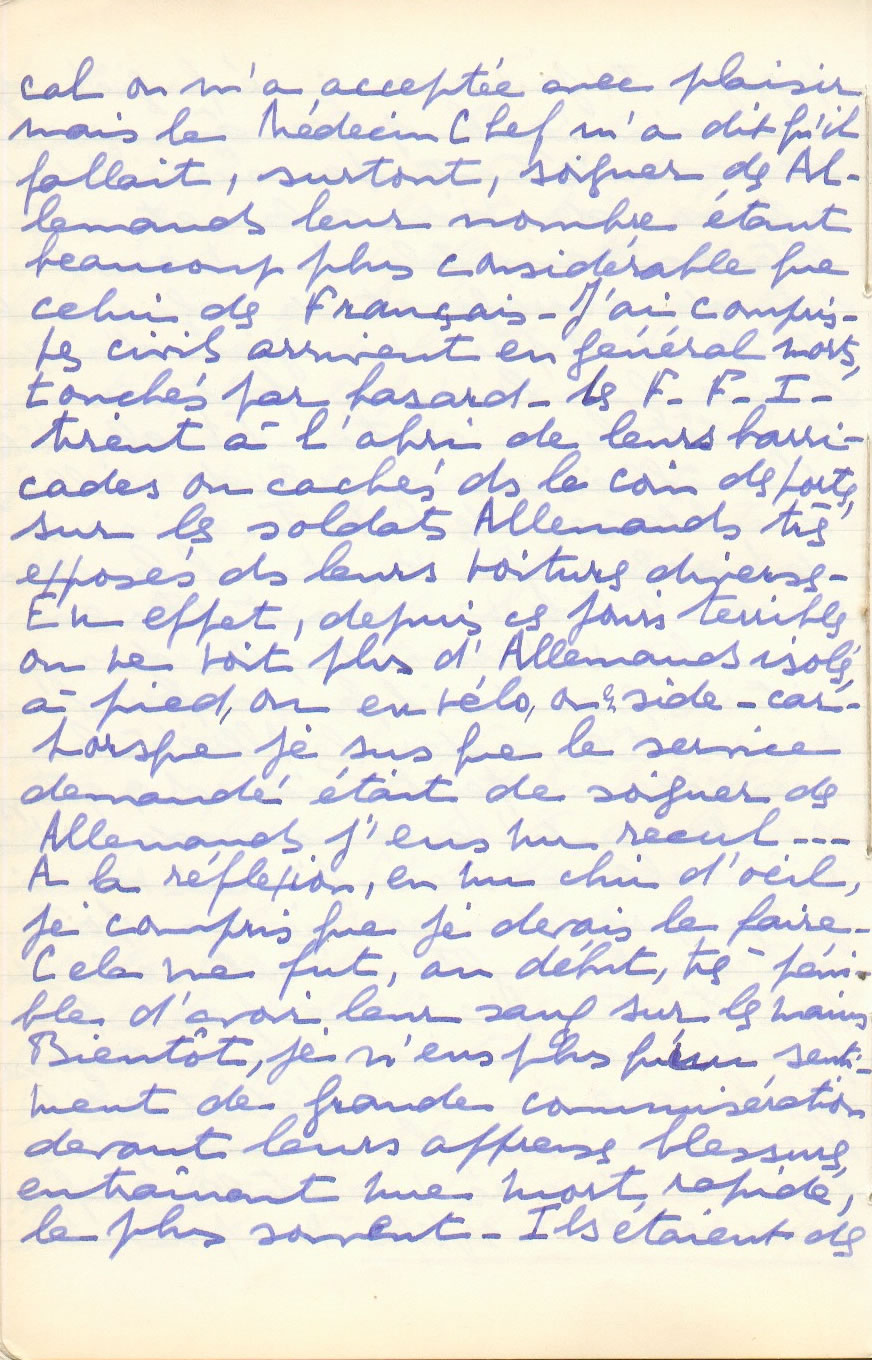 cal on m'a acceptée avec plaisir
mais le Médecin Chef m'a dit qu'il
fallait, surtout, soigner des Al-
lemands leur nombre étant
beaucoup plus considérable que
celui des Français - J'ai compris -
Les civils arrivent en général morts,
touchés par hasard - les F - F - I -
tirent à l'abri de leurs barri-
cades ou cachés ds le coin des portes,
sur les soldats Allemands très
exposés ds leurs voitures diverses -
En effet, depuis ces jours terribles
on ne voit plus d'Allemands isolés,
à pied, ou en vélo, ou en side-car -
Lorsque je sus que le service
demandé était de soigner des
Allemands j'eus un recul ---
A la réflexion, en un clin d'oeil,
je compris que je devais le faire -
Cela me fut, au début, très péni-
ble d'avoir leur sang sur les mains
Bientôt, je n'eus plus qu'un senti-
ment de grande commisération
devant leurs affreuses blessures,
entraînant une mort rapide,
le plus souvent - Ils étaient des